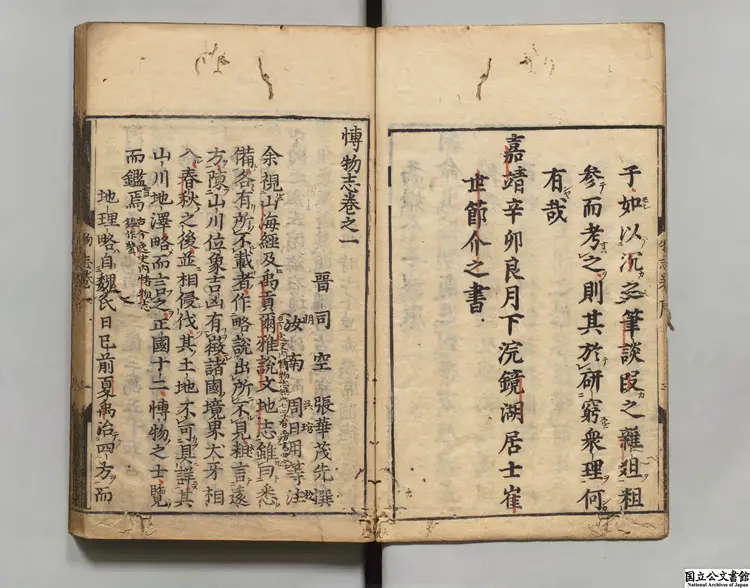 子如以沉之筆談段之雜爼粗
参而考之則其於研窮衆理何
有哉
嘉靖辛卯良月下浣鏡湖居士崔
世節介之書
愽物志卷之一
晋司空張華茂先撰
汝南周日用等注
余視山海經及禹貢爾雅說文地志雖曰悉
備各有所不載者作略說出所不見粗言遠
方陳山川位象吉凶有徴諸國境界犬牙相
入春秋之後並相侵伐其土地不可具詳其
山川地澤略而言之正國十二愽物之士覽
而鑑焉
地理略自魏氏日已前夏禹治四方而
国立公文書館
National Archives of Japan